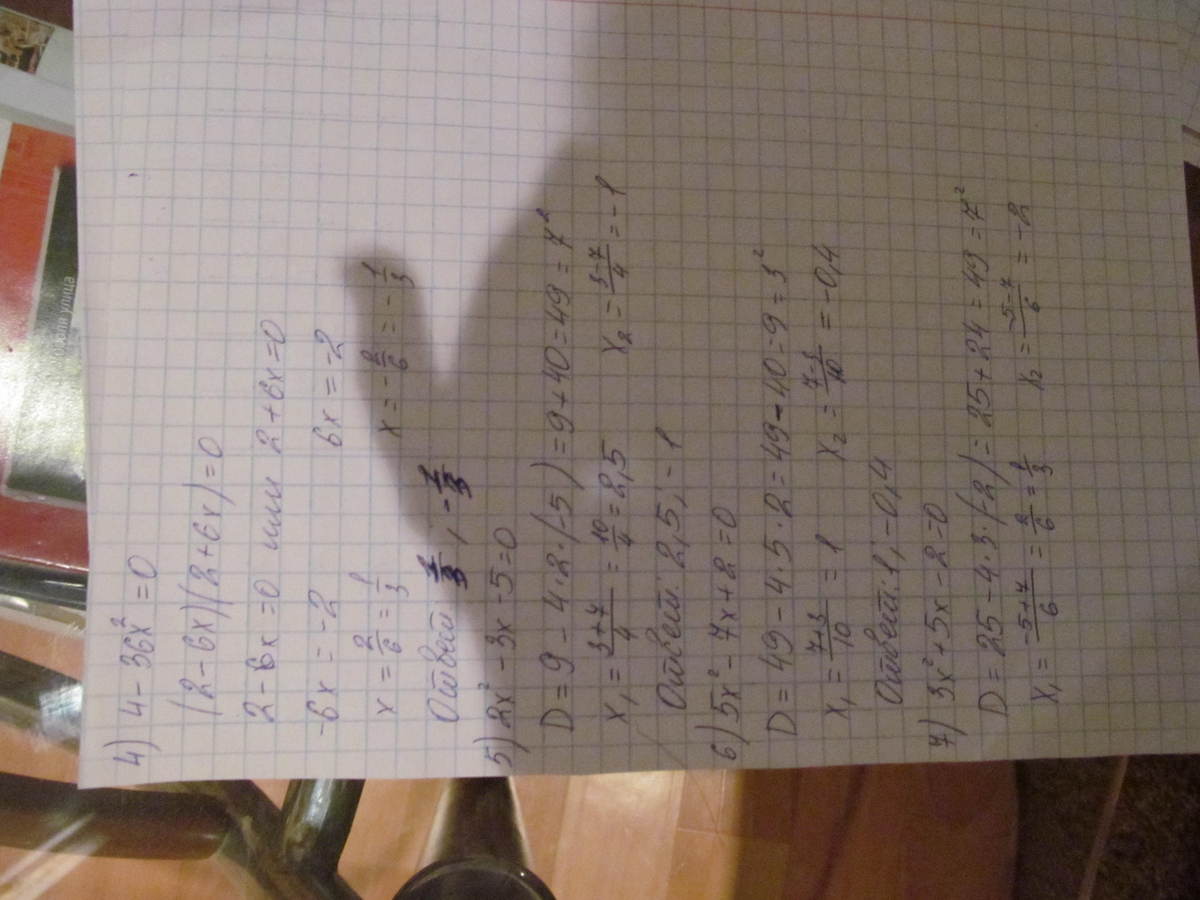 4) 4 - 36x² = 0
(2 - 6x)(2 + 6x) = 0
2 - 6x = 0 или 2 + 6x = 0
-6x = -2 6x = -2
x = 2/6 = 1/3 x = -2/6 = -1/3
Ответ 1/3 ; -1/3
5) 2x² - 3x - 5 = 0
D = 9 - 4·2·(-5) = 9 + 40 = 49 = 7²
x₁ = (3+7)/4 = 10/4 = 2,5 x₂ = (3-7)/4 = -1
Ответ: 2,5 ; -1
6) 5x² - 7x + 2 = 0
D = 49 - 4·5·2 = 49 - 40 = 9 = 3²
x₁ = (7+3)/10 = 1 x₂ = (7-3)/10 = -0,4
Ответ: 1 ; -0,4
7) 3x² + 5x - 2 = 0
D = 25 - 4·3·(-2) = 25 + 24 = 49 = 7²
x₁ = (-5+7)/6 = 2/6 = 1/3 x₂ = (-5-7)/6 = -2
улица